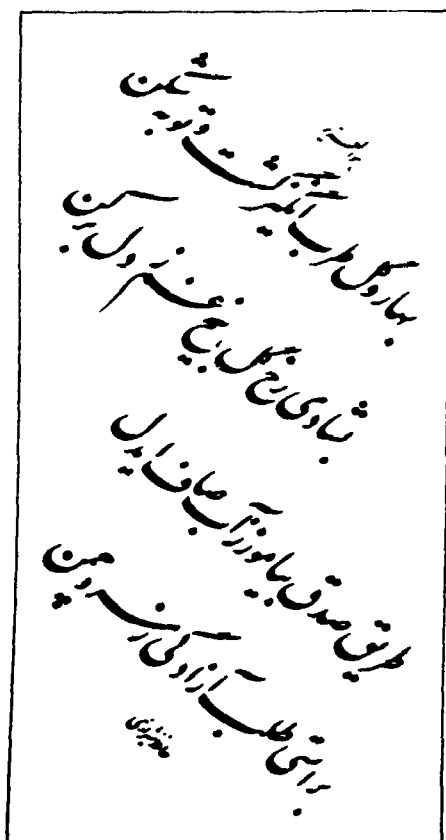 بهار و گل طرب انگیز گشت و توبه شکن
بشادی رخ گل بیخ غم ز دل برکن
طریق صدق بیاموز از آب صاف ایدل
براستی طلب آزادگی ز سرو چمن
حافظ شیرازی